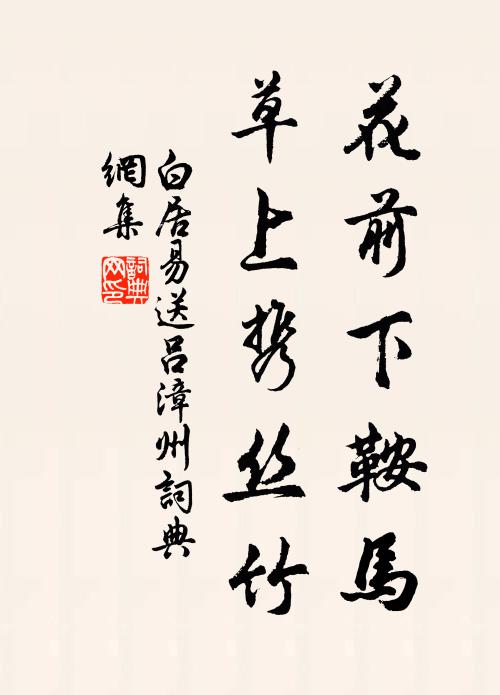 花前下鞍馬
草上携丝竹
白居易送呂漳州詞典
網集
詞典
网印